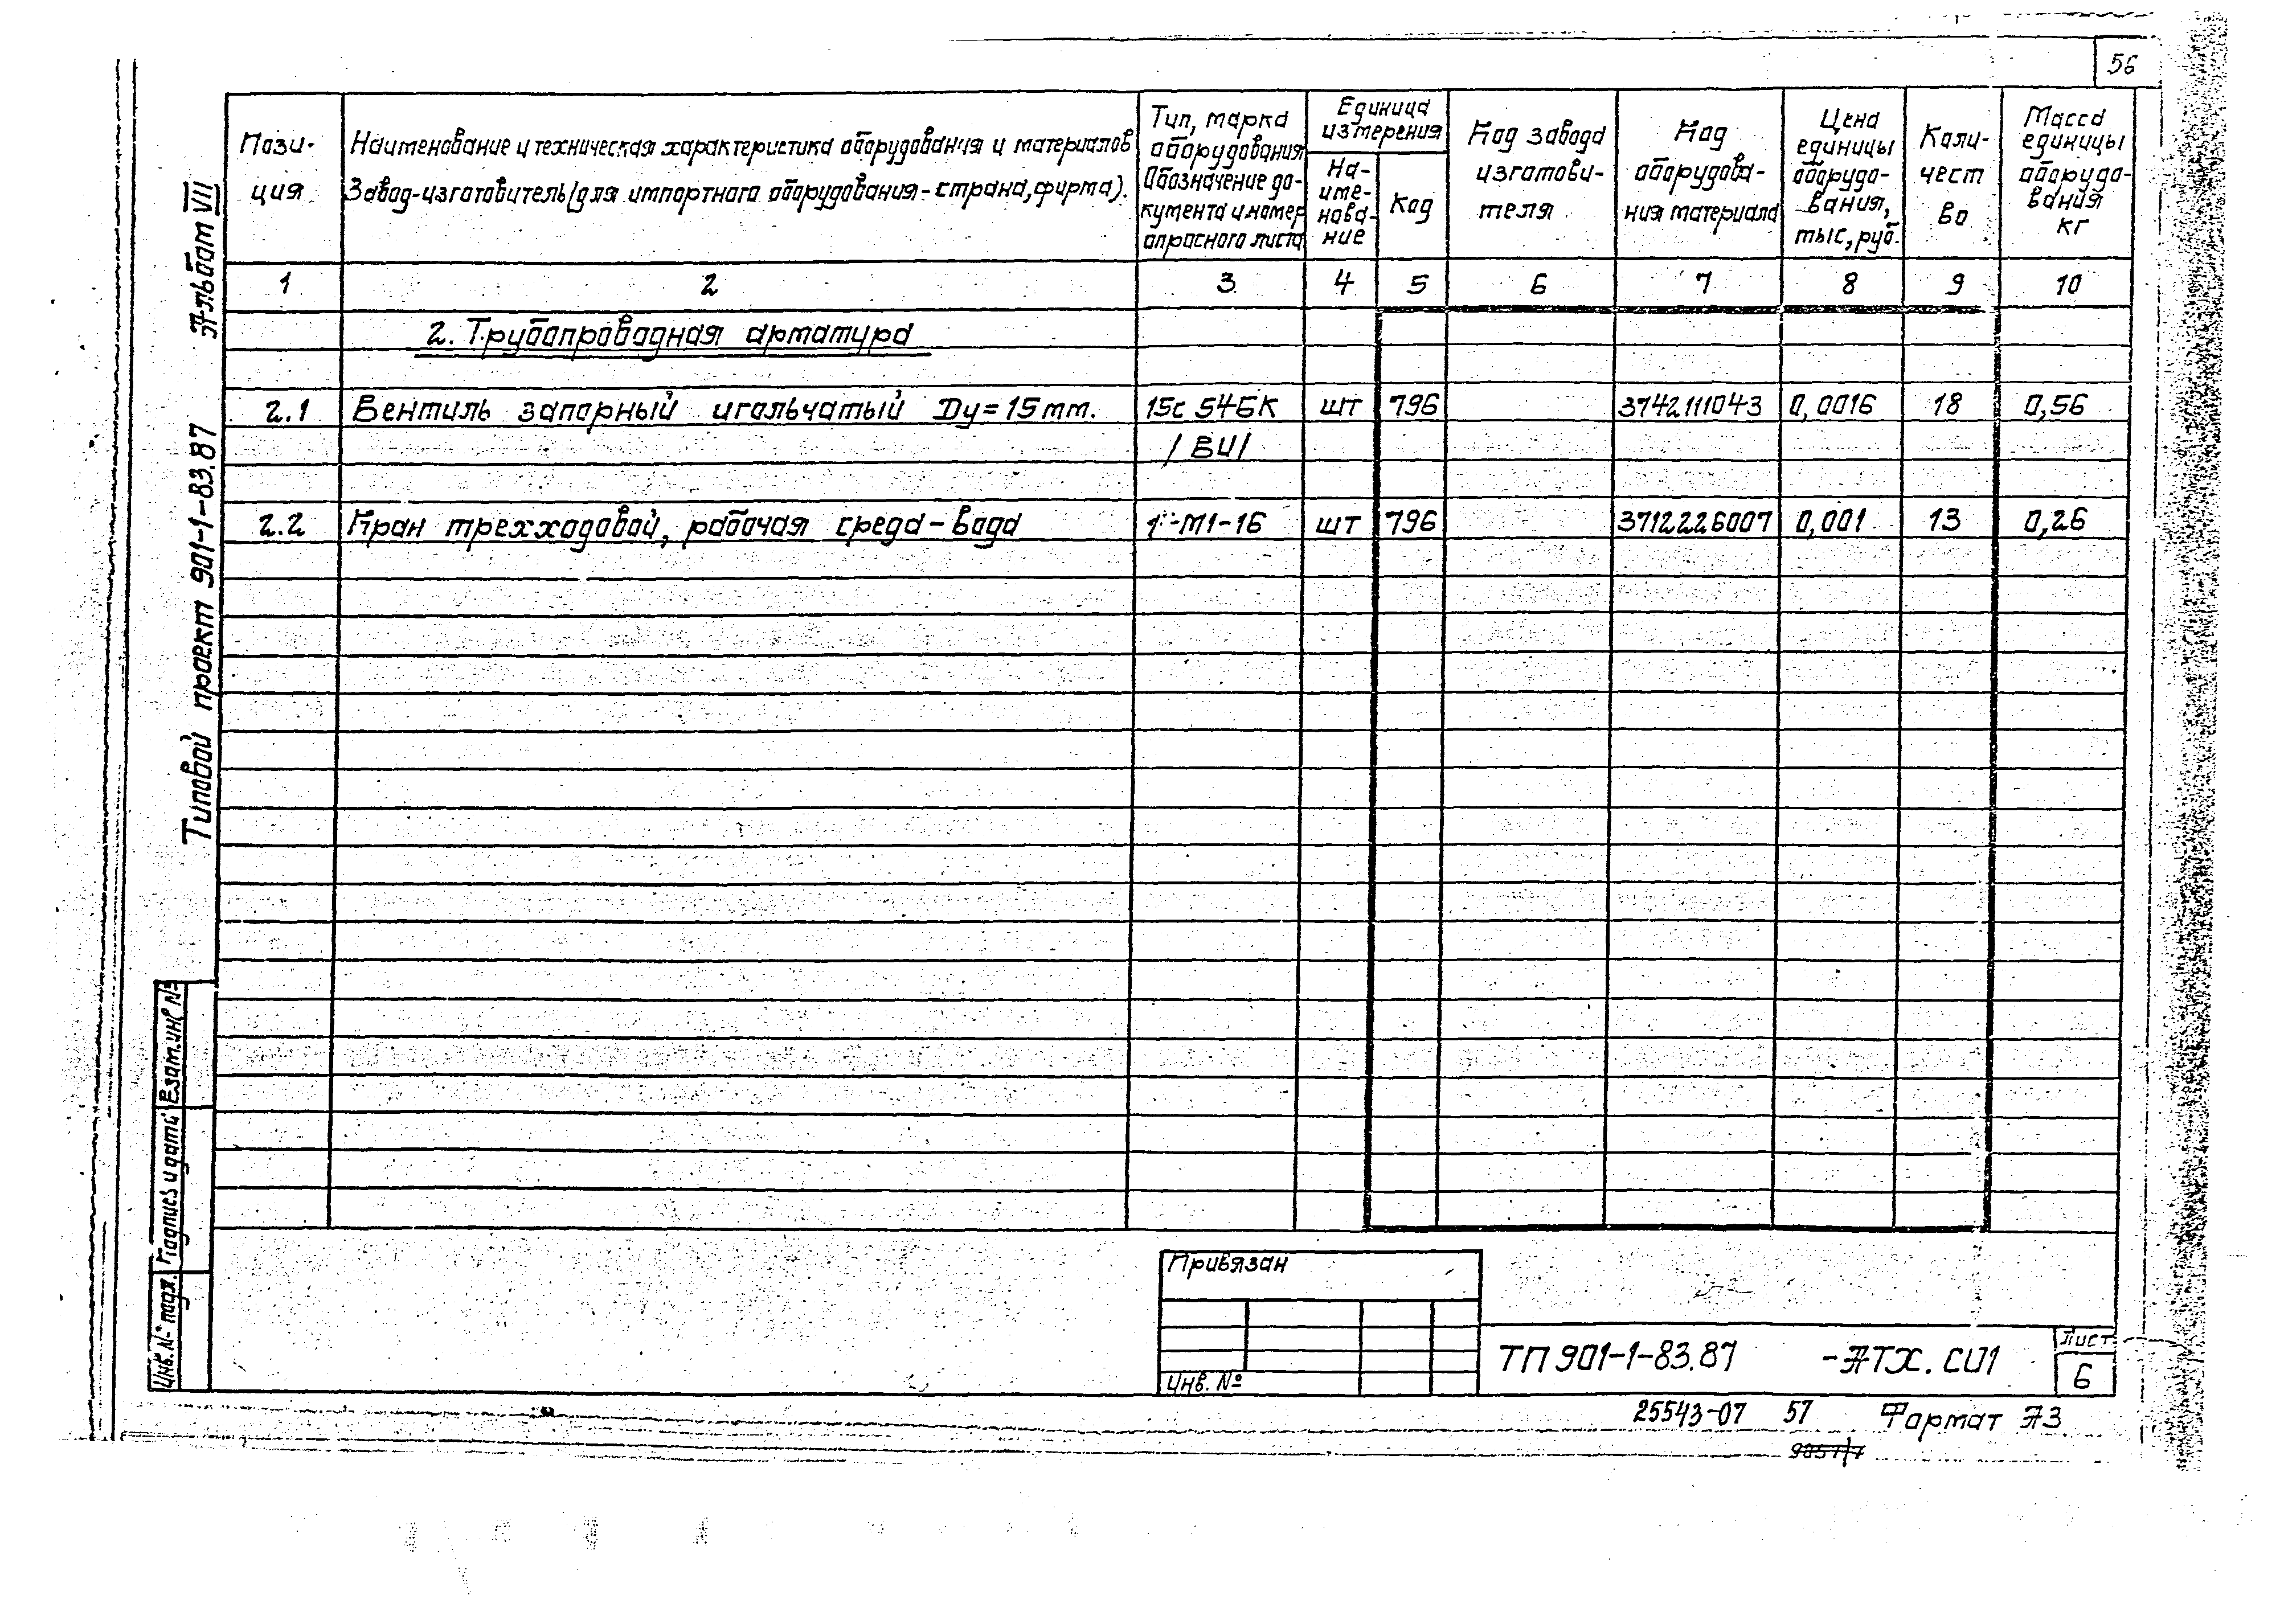 56
Альбом VII
Типовой проект 901-1-83.87
Пози-
ция
Наименование и техническая характеристика оборудования и материалов
Завод-изготовитель (для импортного оборудования - страна, фирма).
Тип, марка
оборудования
Обозначение до-
кумента и номер
опросного листа
Единица
измерения
На-
име-
нова-
ние
Код
Код завода
изготови-
теля
Код
оборудова-
ния материала
Цена
единицы
оборудо-
вания,
тыс, руб.
Коли-
чест
во
Масса
единицы
оборудо-
вания
кг
1 2 3 4 5 6 7 8 9 10
2. Трубопроводная арматура
2.1 Вентиль запорный игольчатый Dу=15мм. 15с 54бк шт 796 3742111043 0,0016 18 0,56
/ВИ/
2.2 Кран трехходовой, рабочая среда - вода М1-16 шт 796 3712226007 0,001 13 0,26
Взам.инв №
Подпись и дата
Инв. № подл.
Привязан
Инв. №
ТП 901-1-83.87 -АТХ. СО1
Лист
6
25543-07 57 Формат А3
9057/7